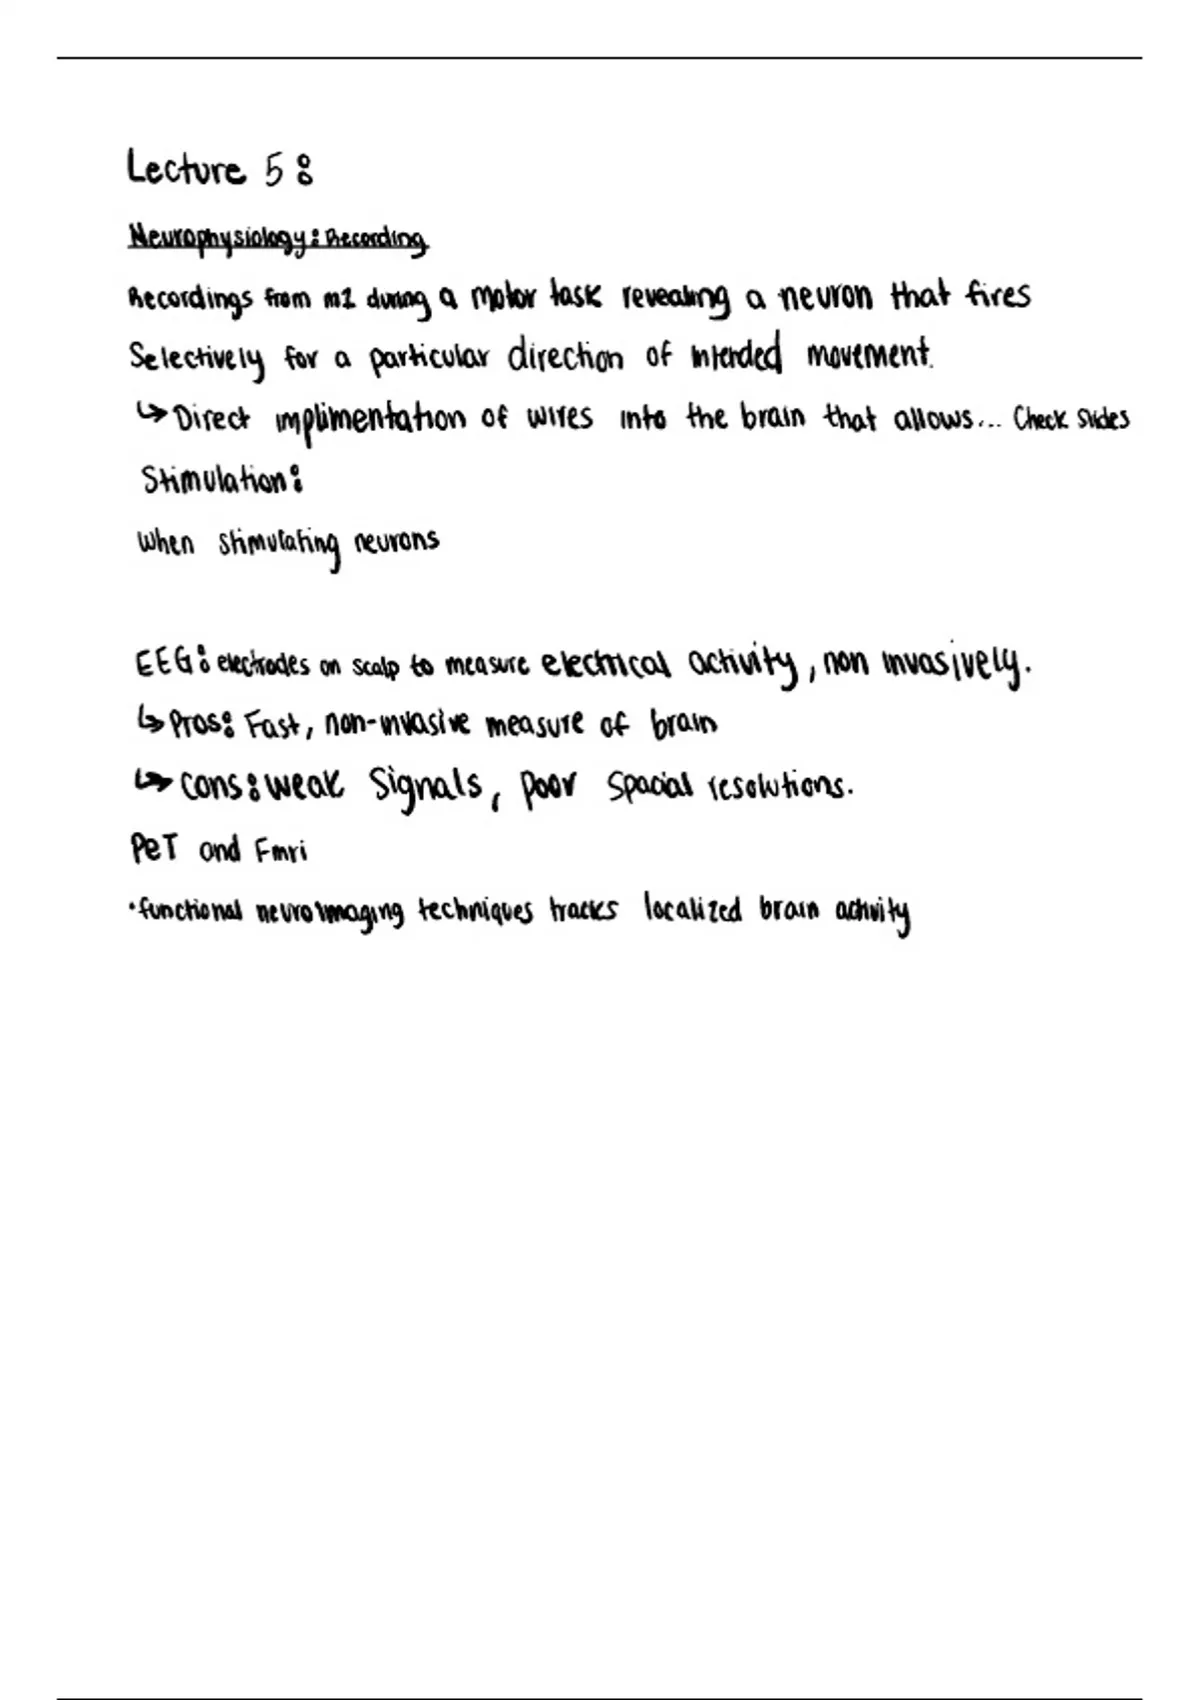 Lecture 5:
Neurophysiology: Recording
Recordings from m1 during a motor task revealing a neuron that fires
Selectively for a particular direction of intended movement.
↳ Direct implimentation of wires into the brain that allows... Check Slides
Stimulation:
When stimulating neurons
EEG: electrodes on scalp to measure electrical activity, non invasively.
↳ Pros: Fast, non-invasive measure of brain
↳ Cons: weak Signals, poor Spacial resolutions.
PeT and Fmri
• functional neuroimaging techniques tracks localized brain activity